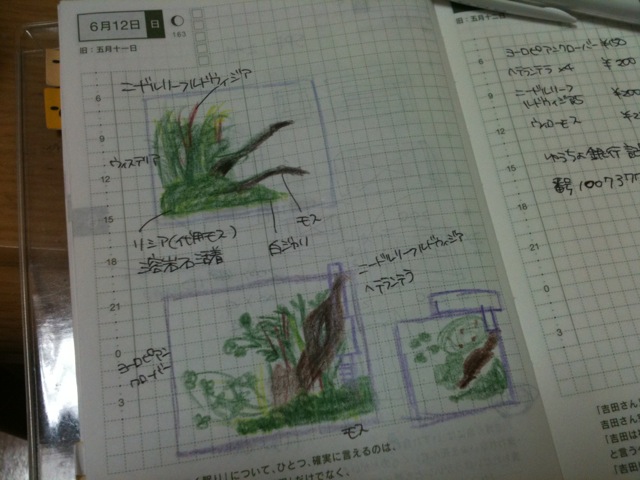 6月12日 日
163
旧:五月十一日
ニードルリーフルドウィジア
ウィステリア
モス
リシア(代用モス)
溶岩石活着
ニードルリーフルドウィジア
ヘテランテラ
ヨーロピアン
クローバー
モス
6
9
12
15
18
21
0
3
について、ひとつ、確実に言えるのは、
だけでなく、
旧:五月十二
ヨーロピアンクローバー ¥150
ヘテランテラ ×4 ¥200
ニードルリーフ
ルドウィジア
ウィローモス
ゆうちょ銀行 記
番号 1007377
6
9
12
15
18
21
0
3
「吉田さん
吉田さん
「吉田は
と言う
「吉田